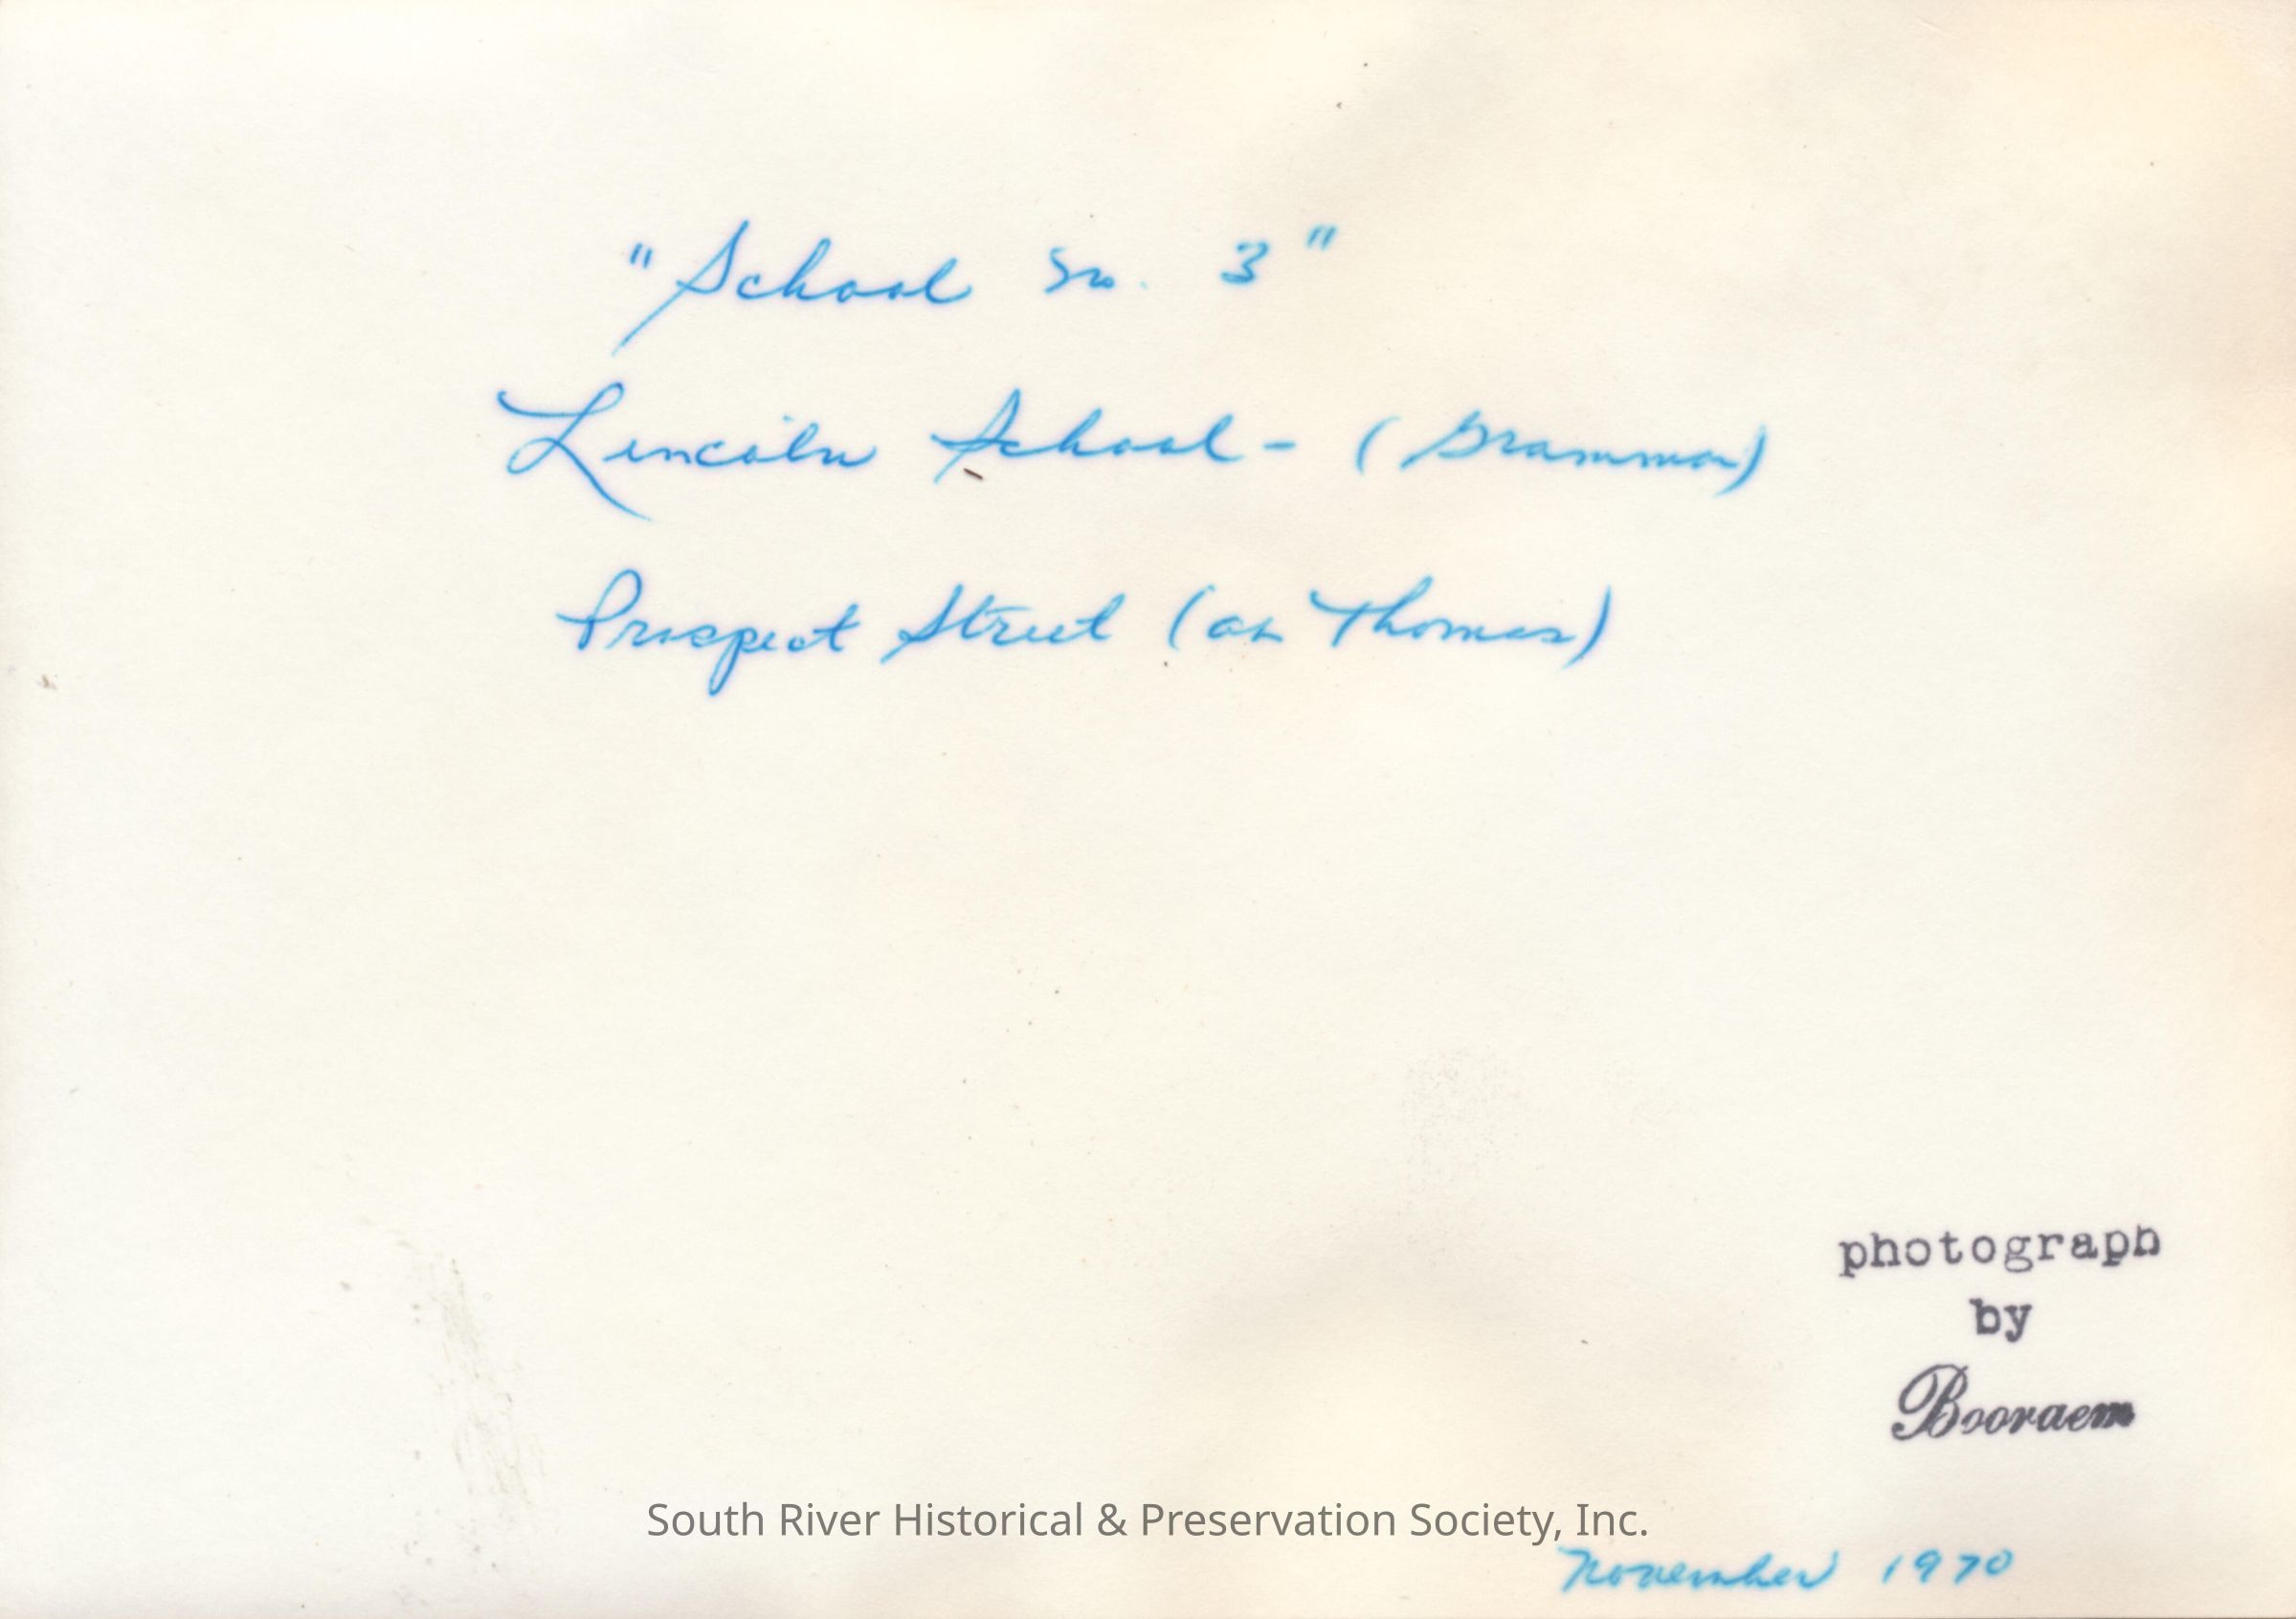 "School No. 3"
Lincoln School - (Grammar)
Prospect Street (on Thomas)
photograph
by
Booraem
South River Historical & Preservation Society, Inc.
November 1970